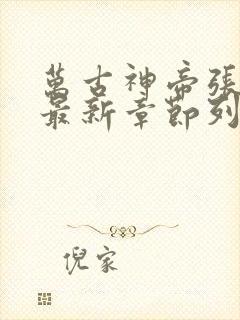 萬古神帝張
最新章節列
倪家